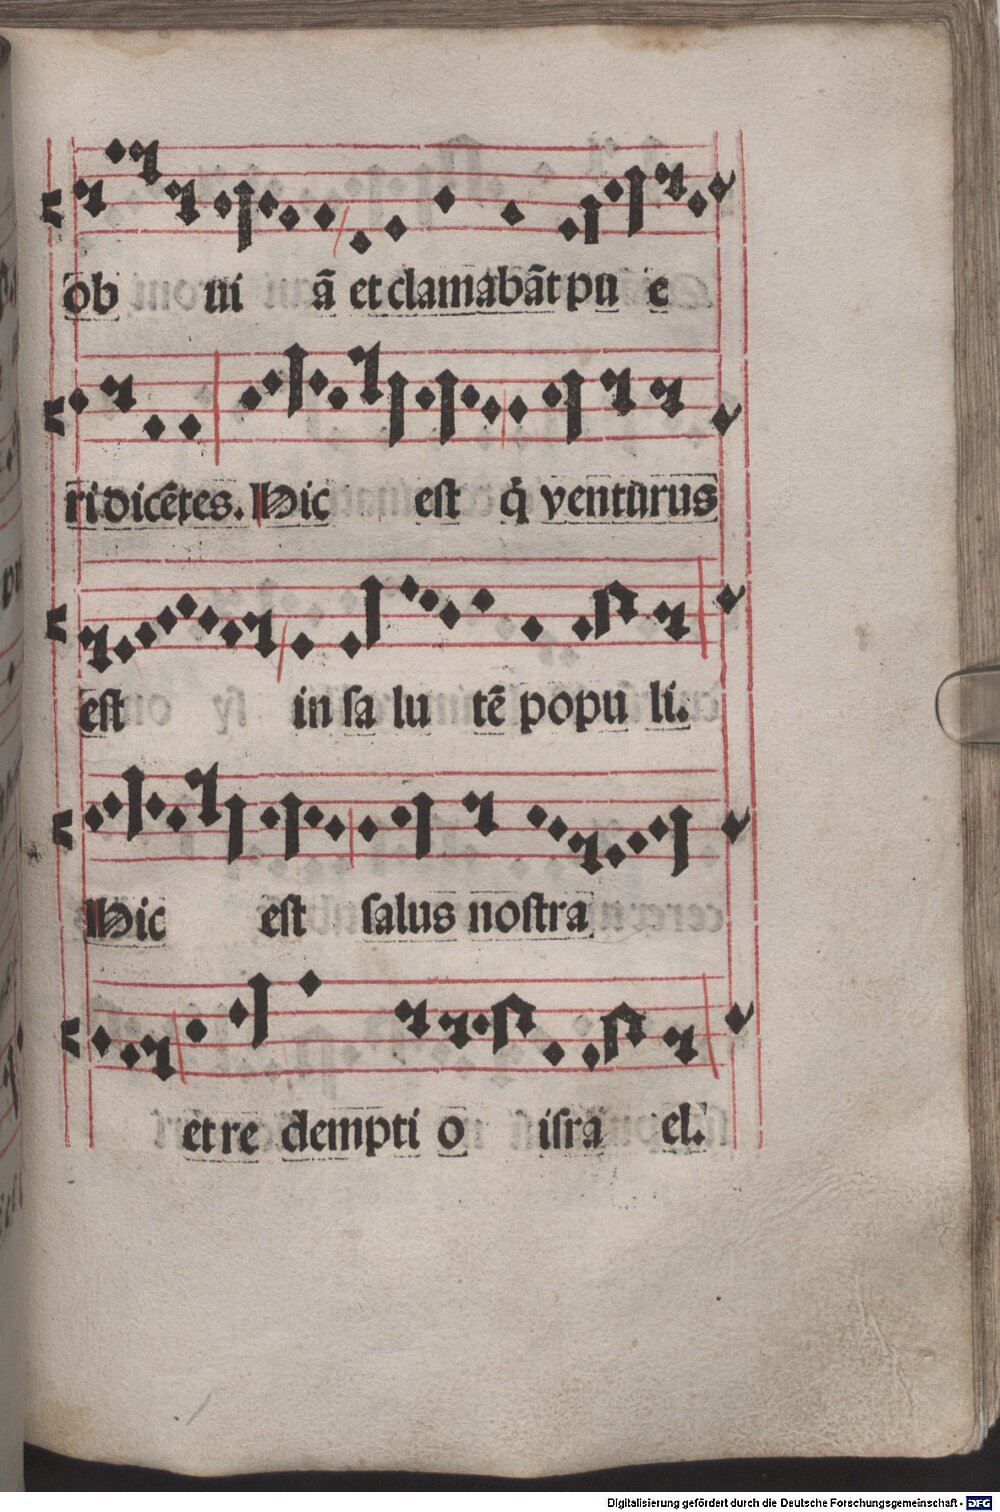 ob ui ā et clamabāt pu e
ri dicētes. Hic est q̇ venturus
est in sa lu tē popu li.
Hic est salus nostra
et re dempti o isra el.
Digitalisierung gefördert durch die Deutsche Forschungsgemeinschaft - DFG